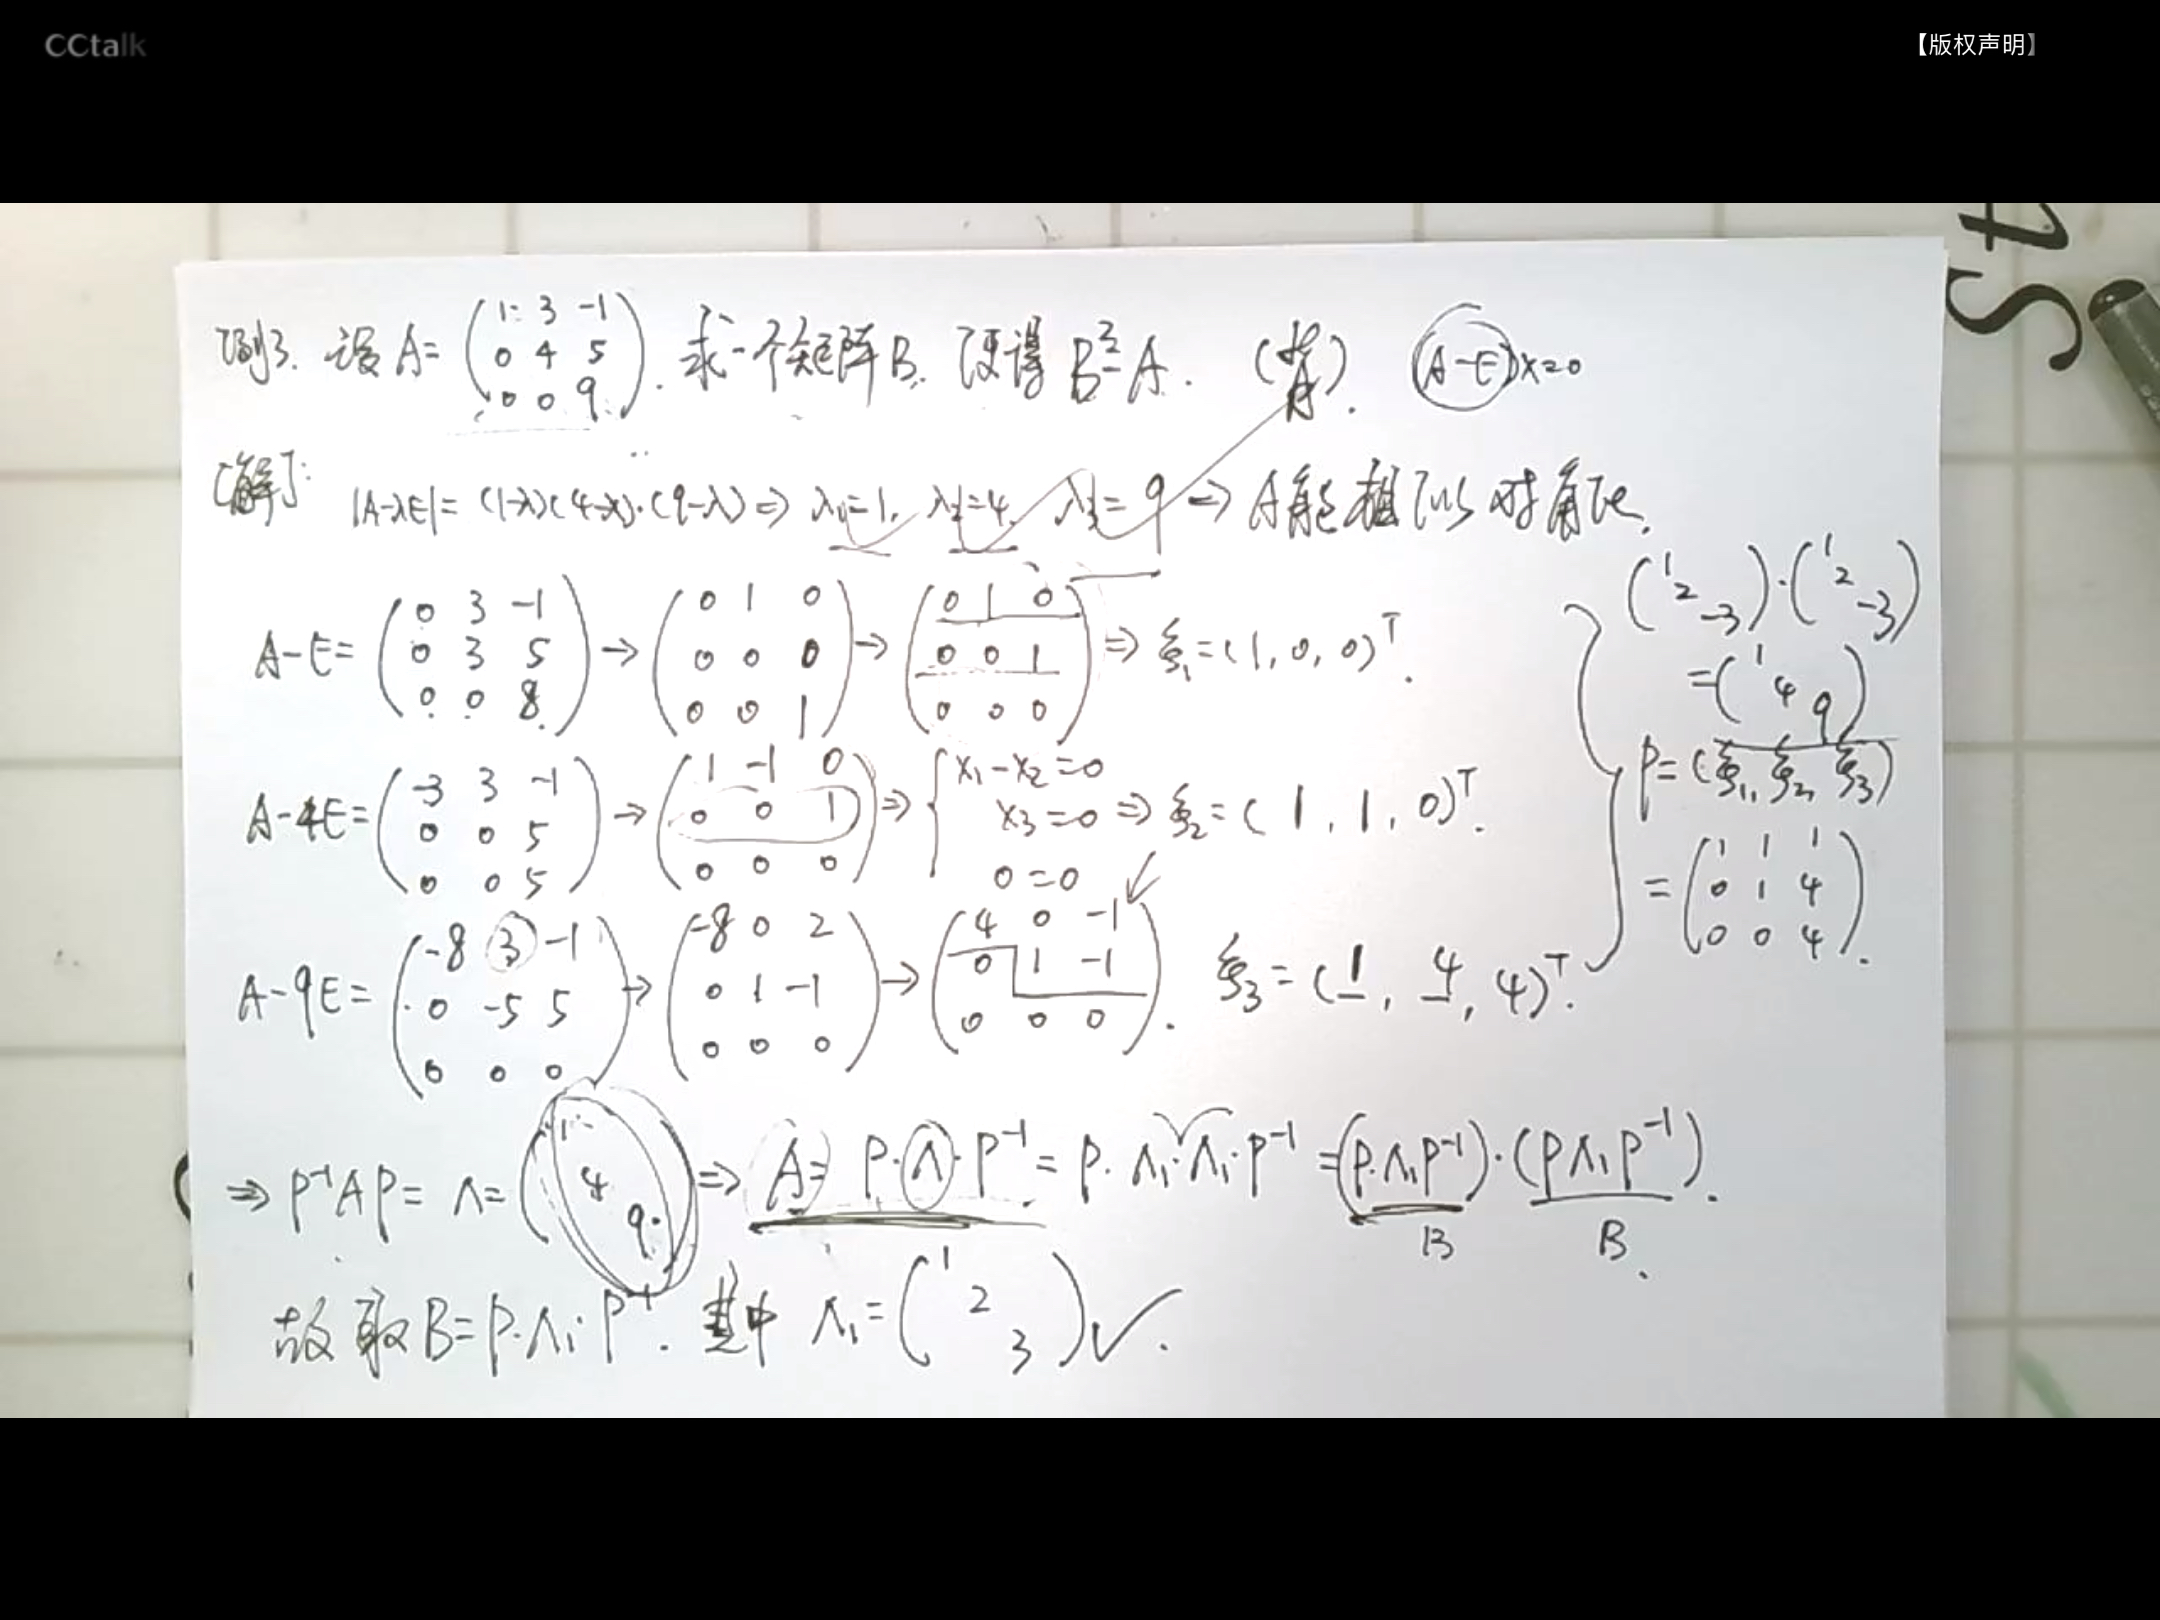 CCtalk
【版权声明】
st
例3. 设 A = (1 3 -1; 0 4 5; 0 0 9). 求一个矩阵B. 使得 B²=A. (A). (A-E)x=0
[解]: |A-λE| = (1-λ)(4-λ)·(9-λ) ⇒ λ₁=1, λ₂=4, λ₃=9 ⇒ A能相似对角化.
A-E = (0 3 -1; 0 3 5; 0 0 8) → (0 1 0; 0 0 0; 0 0 1) → (0 1 0; 0 0 1; 0 0 0) ⇒ ξ₁=(1, 0, 0)ᵀ.
A-4E = (-3 3 -1; 0 0 5; 0 0 5) → (1 -1 0; 0 0 1; 0 0 0) ⇒ { x₁-x₂=0; x₃=0; 0=0 ⇒ ξ₂=(1, 1, 0)ᵀ.
A-9E = (-8 3 -1; 0 -5 5; 0 0 0) → (-8 0 2; 0 1 -1; 0 0 0) → (4 0 -1; 0 1 -1; 0 0 0). ξ₃=(1, 4, 4)ᵀ.
(1 2 -3)·(1 2 -3)
=(1 4 9)
P=(ξ₁, ξ₂, ξ₃)
=(1 1 1; 0 1 4; 0 0 4).
⇒ P⁻¹AP = Λ = (1 4 9) ⇒ A = P·Λ·P⁻¹ = P·Λ₁·Λ₁·P⁻¹ = (P·Λ₁P⁻¹)·(PΛ₁P⁻¹).
B B.
故取 B=P·Λ₁·P⁻¹. 其中 Λ₁=(1 2 3) ✓.